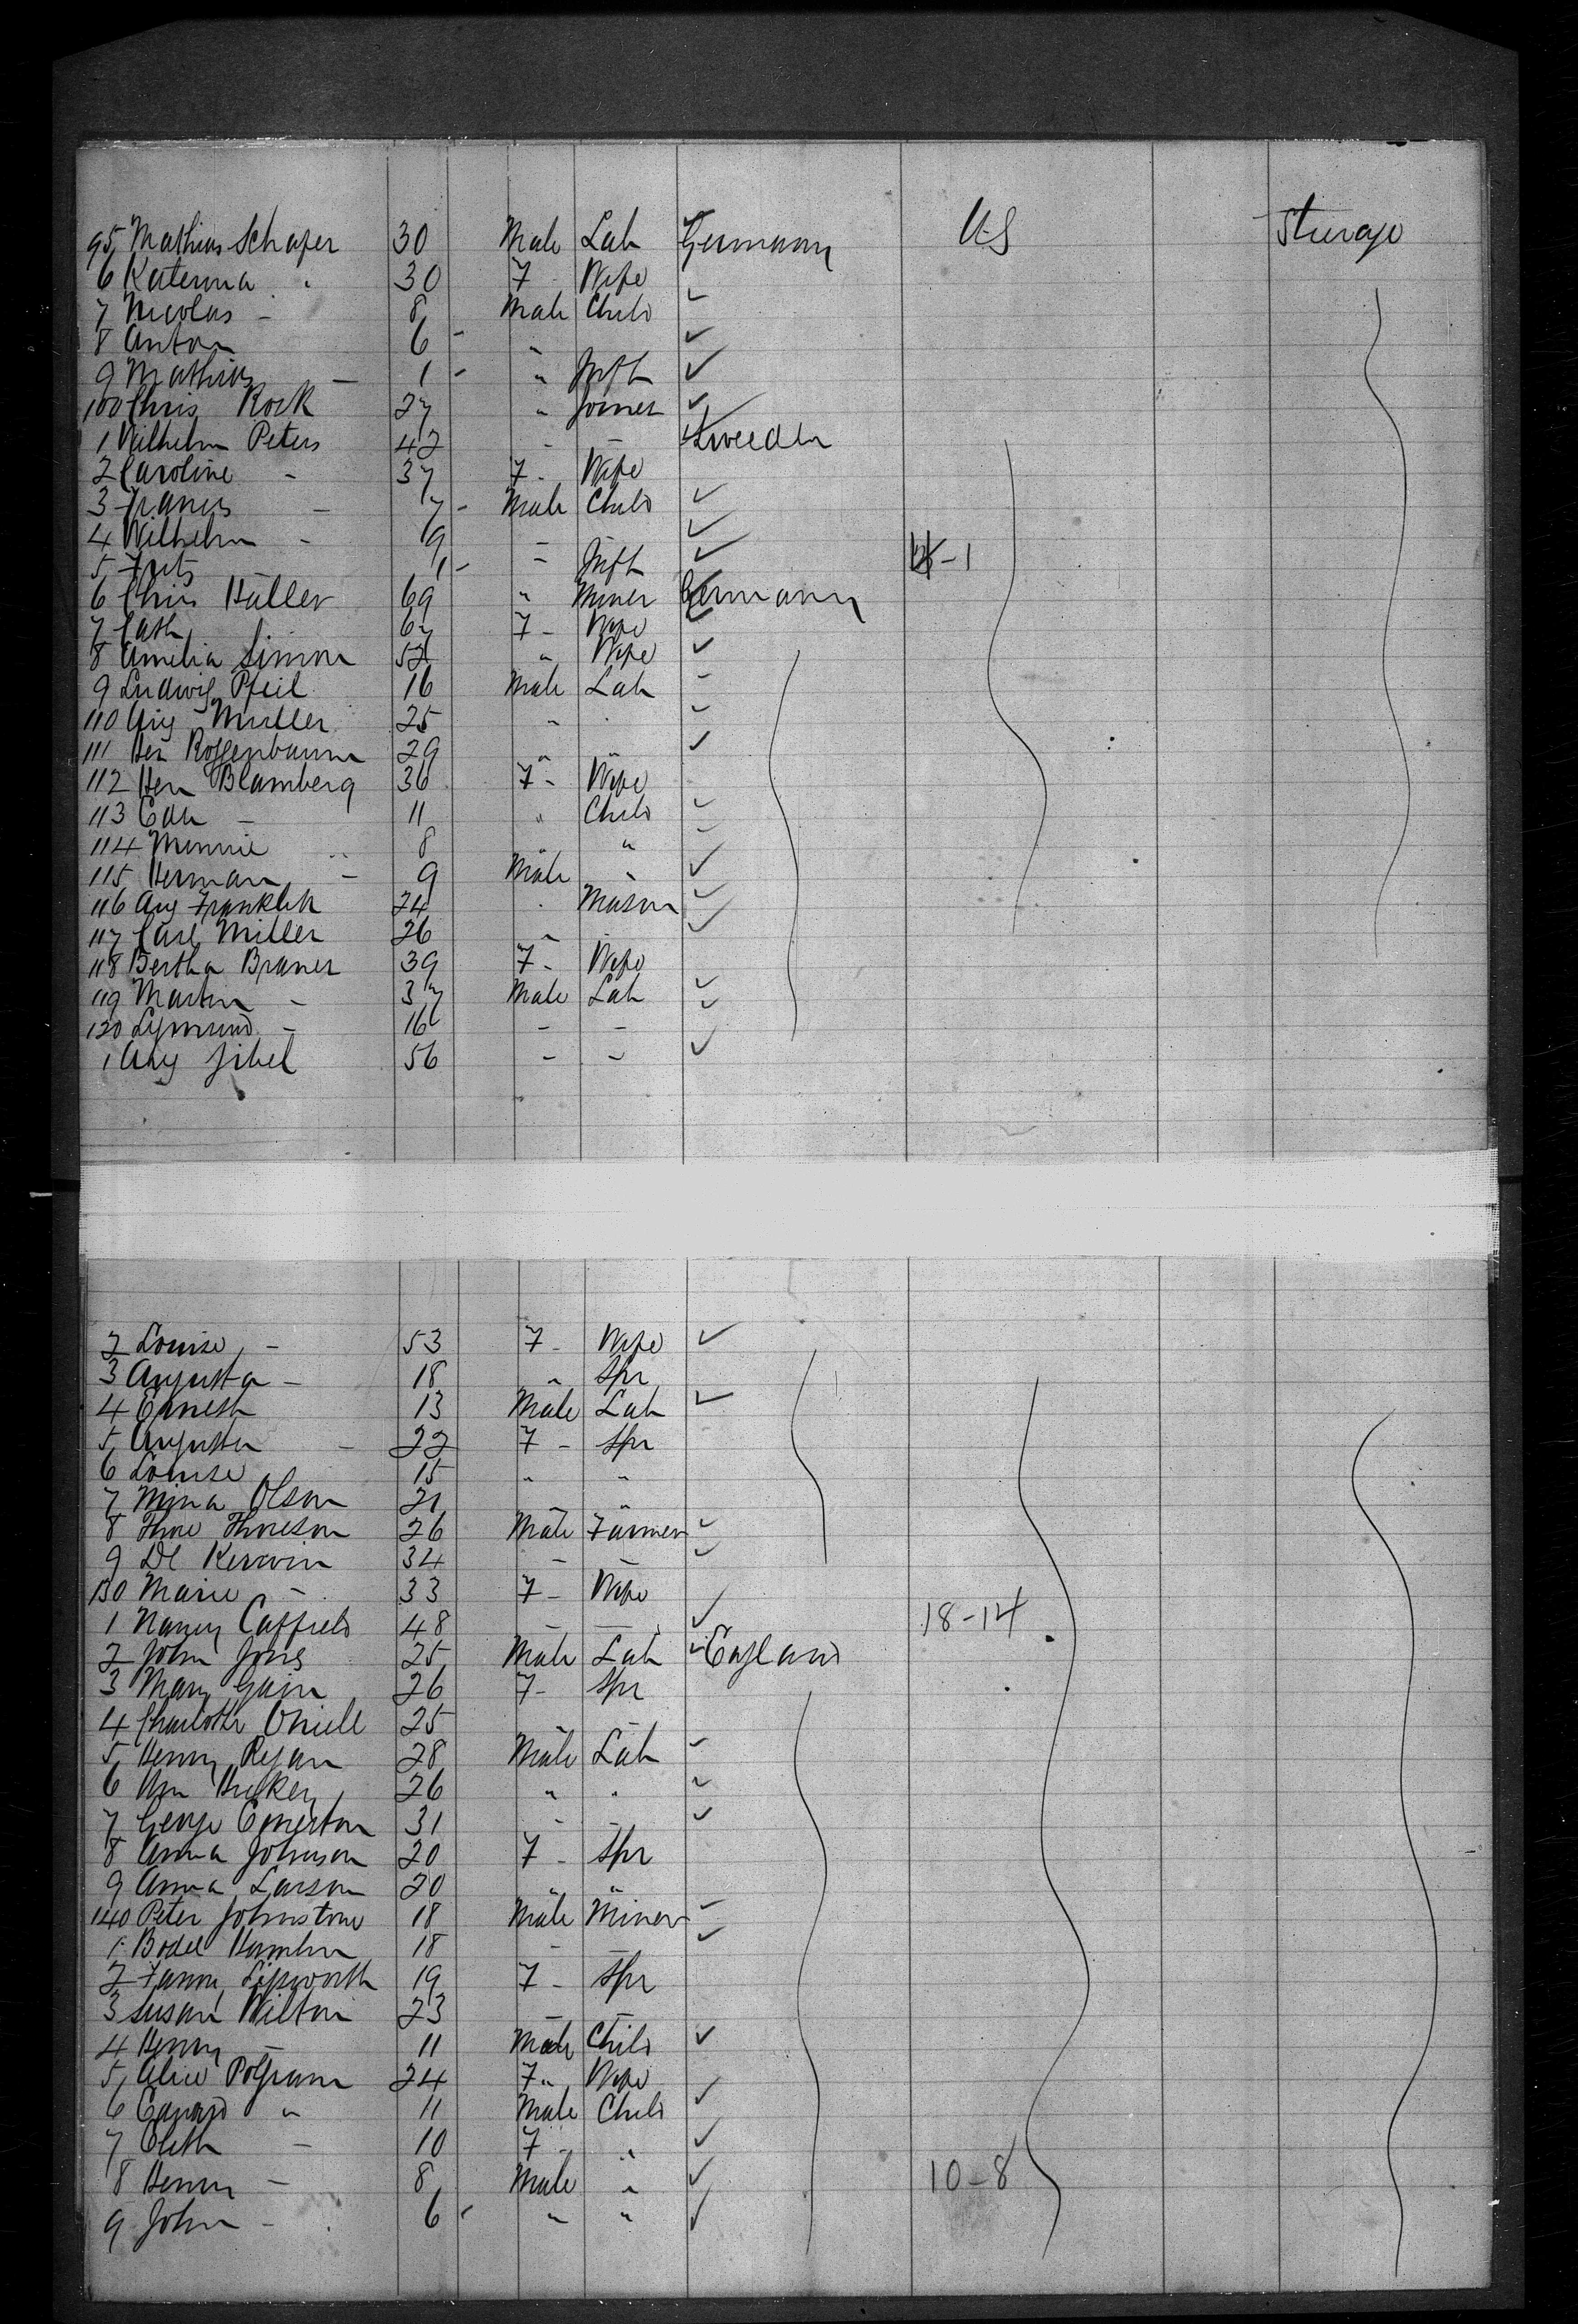 95 Mathias Schafer 30 Male Lab Germany US Steerage
6 Katerina " 30 F - Wife
7 Nicolas - 8 Male Child
8 Anton 6 - "
9 Mathias - 1 - " Inft
100 Chris Rock 27 " Joiner
1 Wilhelm Peters 42 - - Sweeden
2 Caroline - 37 F - Wife
3 Francis - 7 - Male Child
4 Wilhelm - 9 -
5 Fritz 1 - - Inft -1
6 Chris Haller 69 " Miner Germany
7 Cath 67 F - Wife
8 Amelia Simon 52 " Wife
9 Ludwig Pfeil 16 Male Lab
110 Aug Muller 25 " "
111 Her Roggenbaum 29 " "
112 Hen Blamberg 36 F - Wife
113 - 11 " Child
114 Minnie " 8 " "
115 Herman - 9 Male "
116 Aug 24 " Mason
117 Carl Miller 26 " "
118 Bertha Braner 39 F - Wife
119 Martin - 37 Male Lab
120 - 16 - -
1 Aug 56 - -
2 Louise - 53 F - Wife
3 Augusta - 18 " Spr
4 Ernest 13 Male Lab
5 Augusta - 22 F - Spr
6 Louise 15 " "
7 Mina Olson 21 " "
8 Thore Thoreson 26 Male Farmer
9 Kerwin 34 - -
130 Marie - 33 F - Wife
1 Nancy Caffield 48 - - 18-14
2 John Jones 25 Male Lab England
3 Mary Gain 26 F - Spr
4 Charlotte Oniell 25 - -
5 Henry Regan 28 Male Lab
6 Wm 26 " "
7 George Emerton 31 - -
8 Anna Johnson 20 F - Spr
9 Anna Larson 20 " "
140 Peter Johnstone 18 Male Miner
1 Bodel 18 - -
2 Fanny Lipsworth 19 F - Spr
3 Susan Wilton 23 - -
4 Henry - 11 Male Child
5 Alice 24 F " Wife
6 Edward " 11 Male Child
7 - 10 F - "
8 Henry - 8 Male " 10-8
9 John - 6 - " "